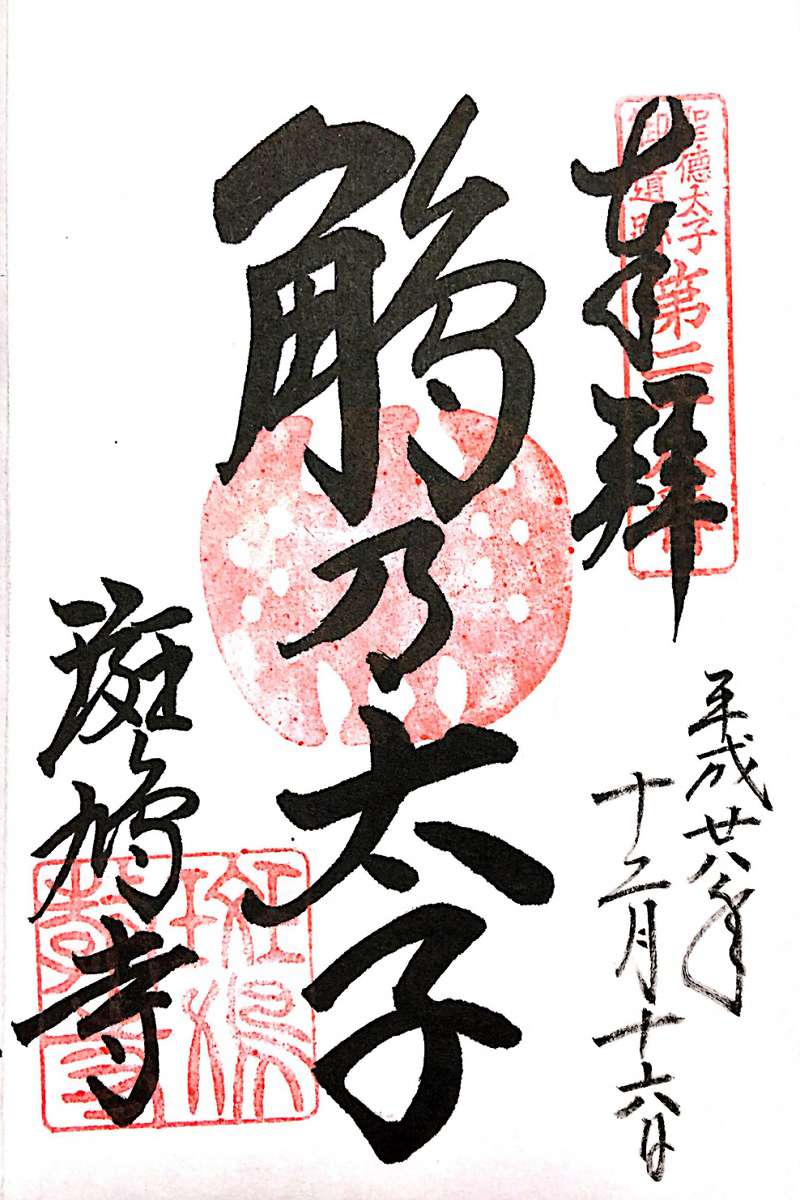 奉拝
聖徳太子
御遺跡
第二
平成廿八年
十二月十六日
鵤乃太子
斑鳩寺
斑鳩